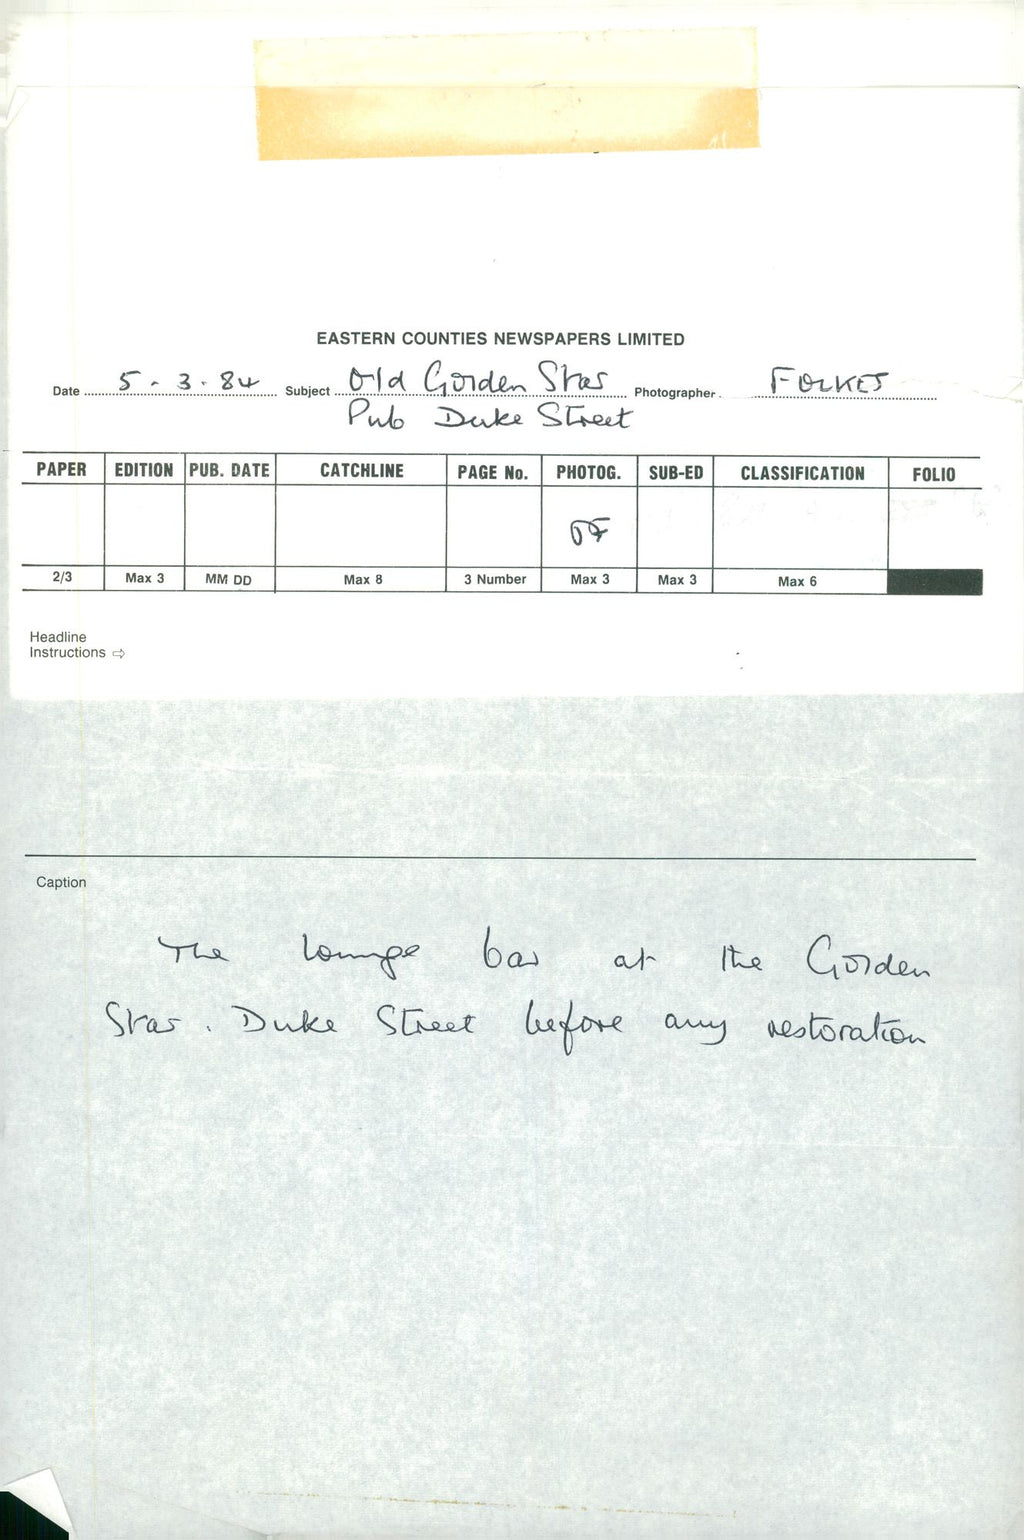 EASTERN COUNTIES NEWSPAPERS LIMITED
Date 5 . 3 . 84 Subject Old Golden Star Photographer FOLKES
Pub Duke Street
PAPER EDITION PUB. DATE CATCHLINE PAGE No. PHOTOG. SUB-ED CLASSIFICATION FOLIO
DF
2/3 Max 3 MM DD Max 8 3 Number Max 3 Max 3 Max 6
Headline
Instructions ⇨
Caption
The lounge bar at the Golden
Star. Duke Street before any restoration